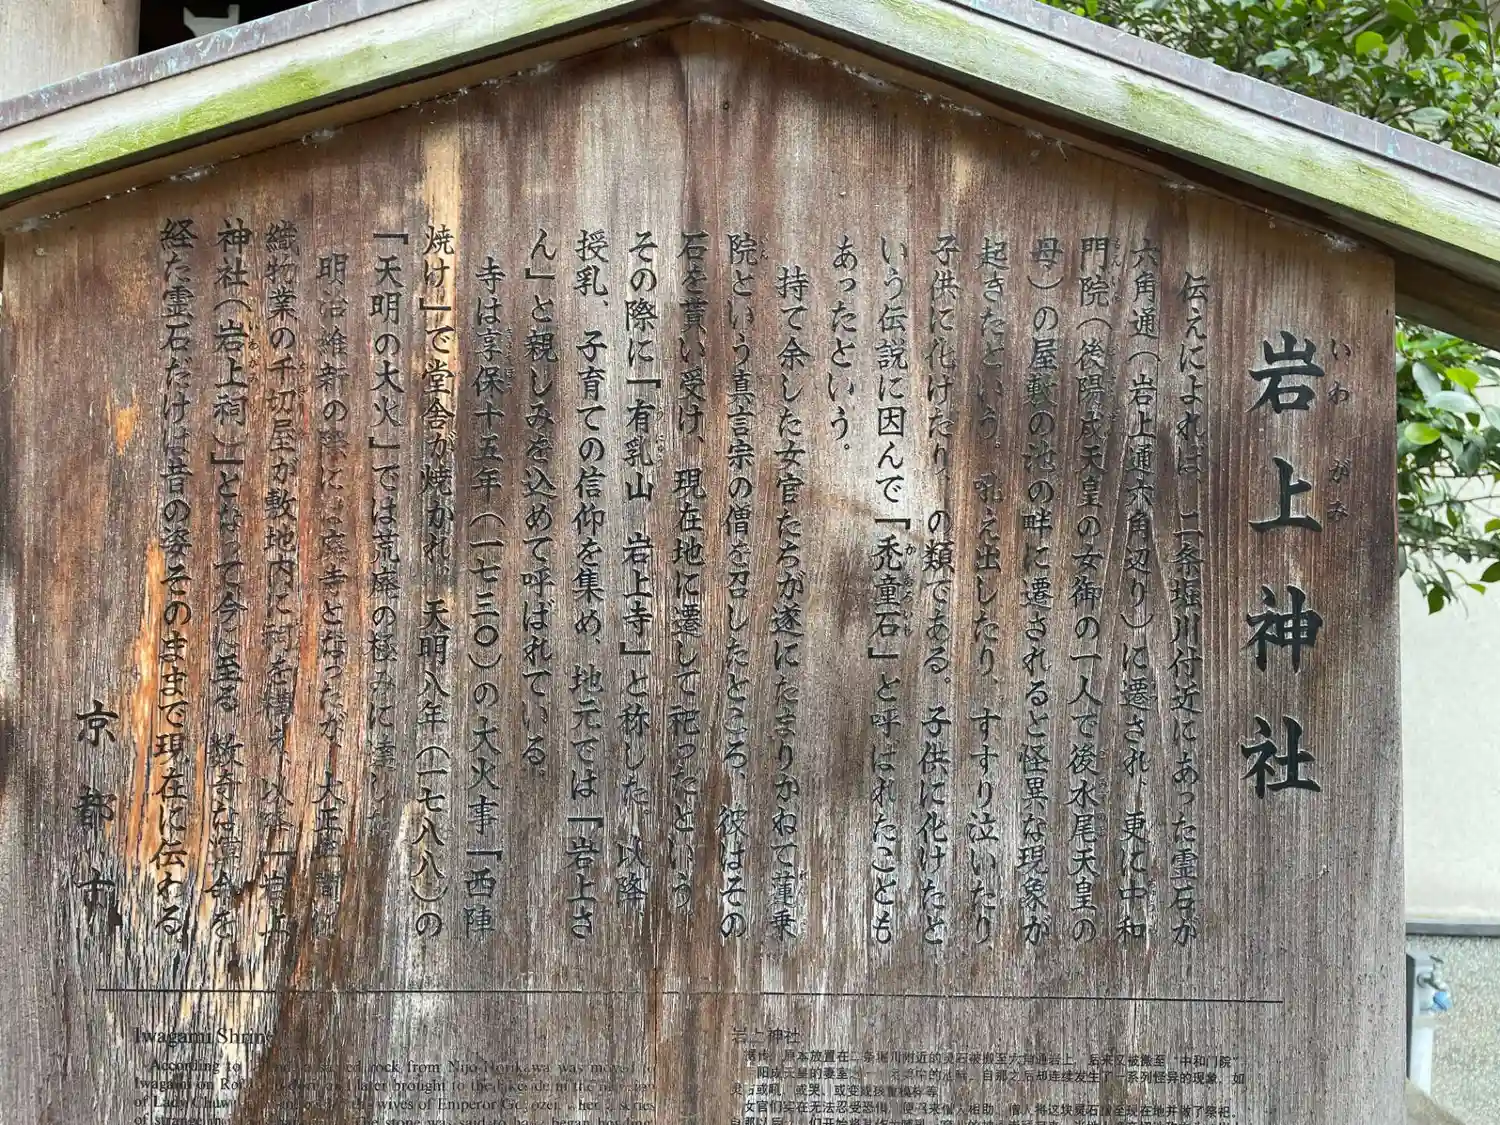 岩上神社
いわ がみ
伝えによれば、二条堀川付近にあった霊石が
六角通(岩上通六角辺り)に遷され、更に中和
門院(後陽成天皇の女御の一人で後水尾天皇の
母)の屋敷の池の畔に遷されると怪異な現象が
起きたという。吼え出したり、すすり泣いたり
子供に化けたり、の類である。子供に化けたと
いう伝説に因んで『禿童石』と呼ばれたことも
あったという。
持て余した女官たちが遂にたまりかねて蓮乗
院という真言宗の僧を召したところ、彼はその
石を貰い受け、現在地に遷して祀ったという
その際に『有乳山 岩上寺』と称した。以降、
授乳、子育ての信仰を集め、地元では『岩上さ
ん』と親しみを込めて呼ばれている。
寺は享保十五年(一七三〇)の大火事「西陣
焼け」で堂舎が焼かれ、天明八年(一七八八)の
「天明の大火」では荒廃の極みに達した
明治維新の際には廃寺となったが、大正
織物業の千切屋が敷地内に祠を構え、以降「岩上
神社(岩上祠)』となって今に至る 数奇な運命を
経た霊石だけは昔の姿そのままで現在に伝わる
京都市
Iwagami Shrine
According to rock from Nijo-Horikawa was moved to
Iwagami on later brought to the lakeside in the
of Lady the wives of Emperor series
of strange The stone was said to have began
岩上神社
据传,原本放置在二条堀川附近的灵石被搬至六角通岩上,后来又被搬至“中和门院”
阳成天皇的妻室 的池畔,自那之后却连续发生了一系列怪异的现象,如
灵石或吼,或哭,或变成孩童模样等
女官们实在无法忍受恐惧,便 来僧人相助,僧人将这块灵石 至现在地并做了祭祀。